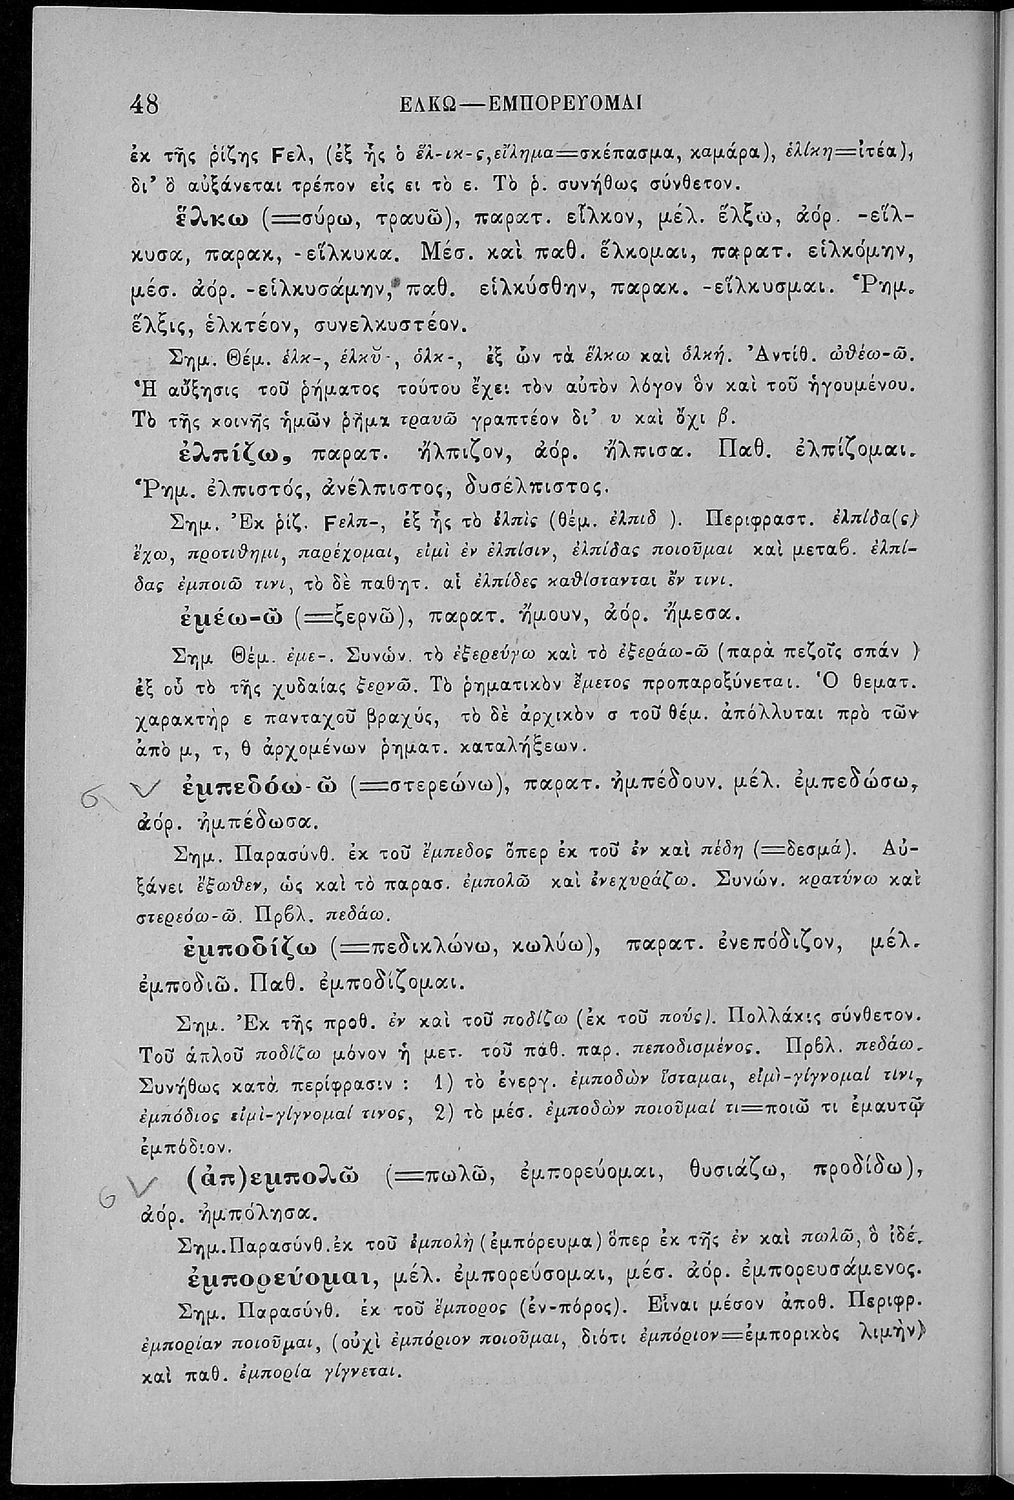 48
ΕΛΚΩ—ΕΜΠΟΡΕΥΟΜΑΙ
ἐκ τῆς ῥίζης Fελ, (ἐξ ἧς ὁ ἕλ-ικ-ς, εἴλημα=σκέπασμα, καμάρα), ἑλίκη=ἰτέα),
δι' ὃ αὐξάνεται τρέπον εἰς ει τὸ ε. Τὸ ῥ. συνήθως σύνθετον.
ἕλκω (=σύρω, τραυῶ), παρατ. εἷλκον, μέλ. ἕλξω, ἀόρ. -εἵλ-
κυσα, παρακ, -εἵλκυκα. Μέσ. καὶ παθ. ἕλκομαι, παρατ. εἱλκόμην,
μέσ. ἀόρ. -εἱλκυσάμην, παθ. εἱλκύσθην, παρακ. -εἵλκυσμαι. Ῥημ.
ἕλξις, ἑλκτέον, συνελκυστέον.
Σημ. Θέμ. ἑλκ-, ἑλκῦ-, ὁλκ-, ἐξ ὧν τὰ ἕλκω καὶ ὁλκή. Ἀντίθ. ὠθέω-ῶ.
Ἡ αὔξησις τοῦ ῥήματος τούτου ἔχει τὸν αὐτὸν λόγον ὃν καὶ τοῦ ἡγουμένου.
Τὸ τῆς κοινῆς ἡμῶν ῥῆμα τραυῶ γραπτέον δι' υ καὶ ὄχι β.
ἐλπίζω, παρατ. ἤλπιζον, ἀόρ. ἤλπισα. Παθ. ἐλπίζομαι.
Ῥημ. ἐλπιστός, ἀνέλπιστος, δυσέλπιστος.
Σημ. Ἐκ ῥίζ. Fελπ-, ἐξ ἧς τὸ ἐλπὶς (θέμ. ἐλπιδ ). Περιφραστ. ἐλπίδα(ς)
ἔχω, προτιθημι, παρέχομαι, εἰμὶ ἐν ἐλπίσιν, ἐλπίδας ποιοῦμαι καὶ μεταβ. ἐλπί-
δας ἐμποιῶ τινι, τὸ δὲ παθητ. αἱ ἐλπίδες καθίστανται ἔν τινι.
ἐμέω-ῶ (=ξερνῶ), παρατ. ἤμουν, ἀόρ. ἤμεσα.
Σημ Θέμ. ἐμε-. Συνών. τὸ ἐξερεύγω καὶ τὸ ἐξεράω-ῶ (παρὰ πεζοῖς σπάν )
ἐξ οὗ τὸ τῆς χυδαίας ξερνῶ. Τὸ ῥηματικὸν ἔμετος προπαροξύνεται. Ὁ θεματ.
χαρακτὴρ ε πανταχοῦ βραχύς, τὸ δὲ ἀρχικὸν σ τοῦ θέμ. ἀπόλλυται πρὸ τῶν
ἀπὸ μ, τ, θ ἀρχομένων ῥηματ. καταλήξεων.
ἐμπεδόω-ῶ (=στερεώνω), παρατ. ἠμπέδουν. μέλ. ἐμπεδώσω,
ἀόρ. ἠμπέδωσα.
Σημ. Παρασύνθ. ἐκ τοῦ ἔμπεδος ὅπερ ἐκ τοῦ ἐν καὶ πέδη (=δεσμά). Αὐ-
ξάνει ἔξωθεν, ὡς καὶ τὸ παρασ. ἐμπολῶ καὶ ἐνεχυράζω. Συνών. κρατύνω καὶ
στερεόω-ῶ. Πρβλ. πεδάω.
ἐμποδίζω (=πεδικλώνω, κωλύω), παρατ. ἐνεπόδιζον, μέλ.
ἐμποδιῶ. Παθ. ἐμποδίζομαι.
Σημ. Ἐκ τῆς προθ. ἐν καὶ τοῦ ποδίζω (ἐκ τοῦ πούς). Πολλάκις σύνθετον.
Τοῦ ἁπλοῦ ποδίζω μόνον ἡ μετ. τοῦ παθ. παρ. πεποδισμένος. Πρβλ. πεδάω.
Συνήθως κατὰ περίφρασιν : 1) τὸ ἐνεργ. ἐμποδὼν ἵσταμαι, εἰμὶ-γίγνομαί τινι,
ἐμπόδιος εἰμὶ-γίγνομαί τινος, 2) τὸ μέσ. ἐμποδὼν ποιοῦμαί τι=ποιῶ τι ἐμαυτῷ
ἐμπόδιον.
(ἀπ)εμπολῶ (=πωλῶ, ἐμπορεύομαι, θυσιάζω, προδίδω),
ἀόρ. ἠμπόλησα.
Σημ. Παρασύνθ. ἐκ τοῦ ἐμπολὴ (ἐμπόρευμα) ὅπερ ἐκ τῆς ἐν καὶ πωλῶ, ὃ ἰδέ.
ἐμπορεύομαι, μέλ. ἐμπορεύσομαι, μέσ. ἀόρ. ἐμπορευσάμενος.
Σημ. Παρασύνθ. ἐκ τοῦ ἔμπορος (ἐν-πόρος). Εἶναι μέσον ἀποθ. Περιφρ.
ἐμπορίαν ποιοῦμαι, (οὐχὶ ἐμπόριον ποιοῦμαι, διότι ἐμπόριον=ἐμπορικὸς λιμὴν)
καὶ παθ. ἐμπορία γίγνεται.